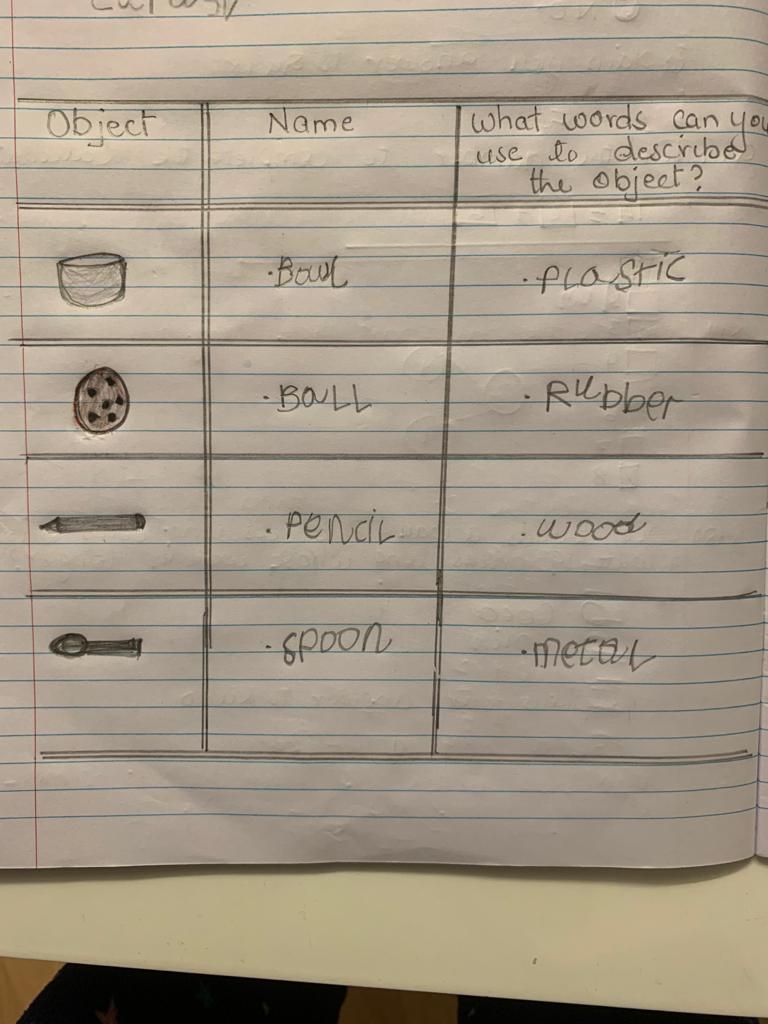 Object Name What words can you
use to describe
the object?
·Bowl ·PLAStiC
·BALL ·Rubber
·PenciL ·wood
·spoon ·metaL